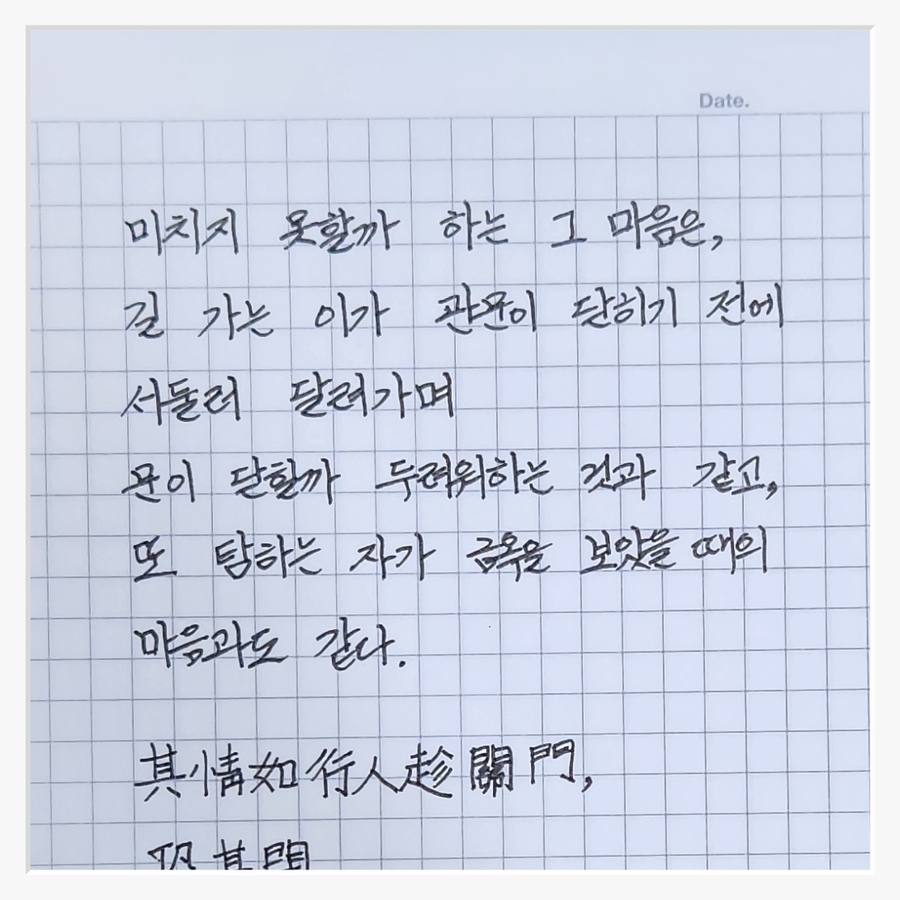 Date.
미치지 못할까 하는 그 마음은,
길 가는 이가 관문이 닫히기 전에
서둘러 달려가며
문이 닫힐까 두려워하는 것과 같고,
또 탐하는 자가 금옥을 보았을 때의
마음과도 같다.
其情如行人趁關門,
恐其閉